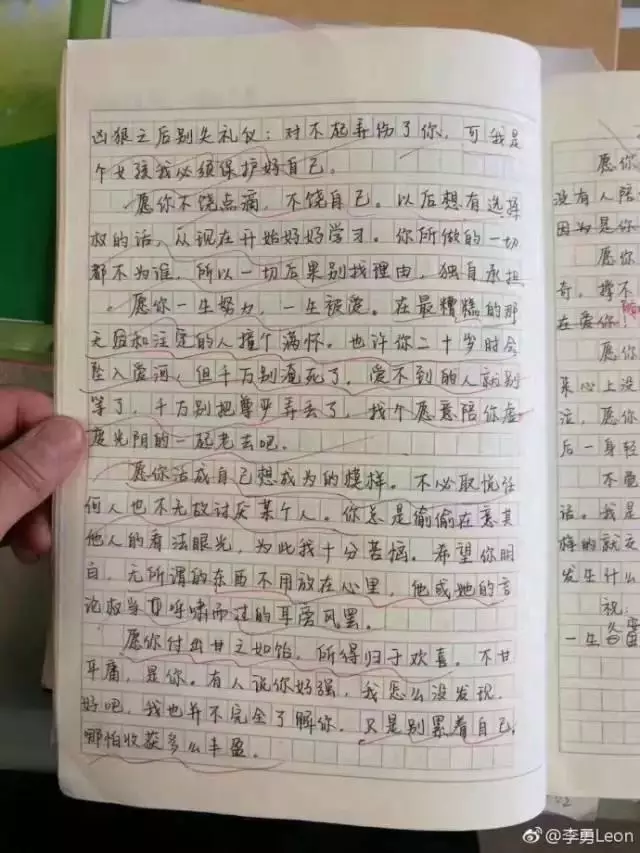 凶狠之后别失礼仪：对不起弄伤了你，可我是
个女孩我必须保护好自己。
愿你不饶点滴，不饶自己。以后想有选择
权的话，从现在开始好好学习。你所做的一切
都不为谁，所以一切后果别找理由，独自承担
愿你一生努力，一生被爱。在最糟糕的那
天和注定的人撞个满怀。也许你二十岁时会
坠入爱河，但千万别淹死了，爱不到的人就别
等了，千万别把尊严弄丢了，找个愿意陪你虚
度光阴的一起老去吧。
愿你活成自己想成为的模样。不必取悦任
何人也不无故讨厌某个人。你总是偷偷在意其
他人的看法眼光，为此我十分苦恼。希望你明
白，无所谓的东西不用放在心里，他或她的言
论权当呼啸而过的耳旁风罢。
愿你付出甘之如饴，所得归于欢喜。不甘
平庸，是你。有人说你好强，我怎么没发现，
好吧，我也并不完全了解你，只是别累着自己，
哪怕收获多么丰盈。
愿你
没有人陪
因为是你
愿你
奇，撑不
在爱你！
愿你
来心上没
泣，愿你
后一身轻
不
话。我是
样的就交
发生什么
祝：
一生
@李勇Leon